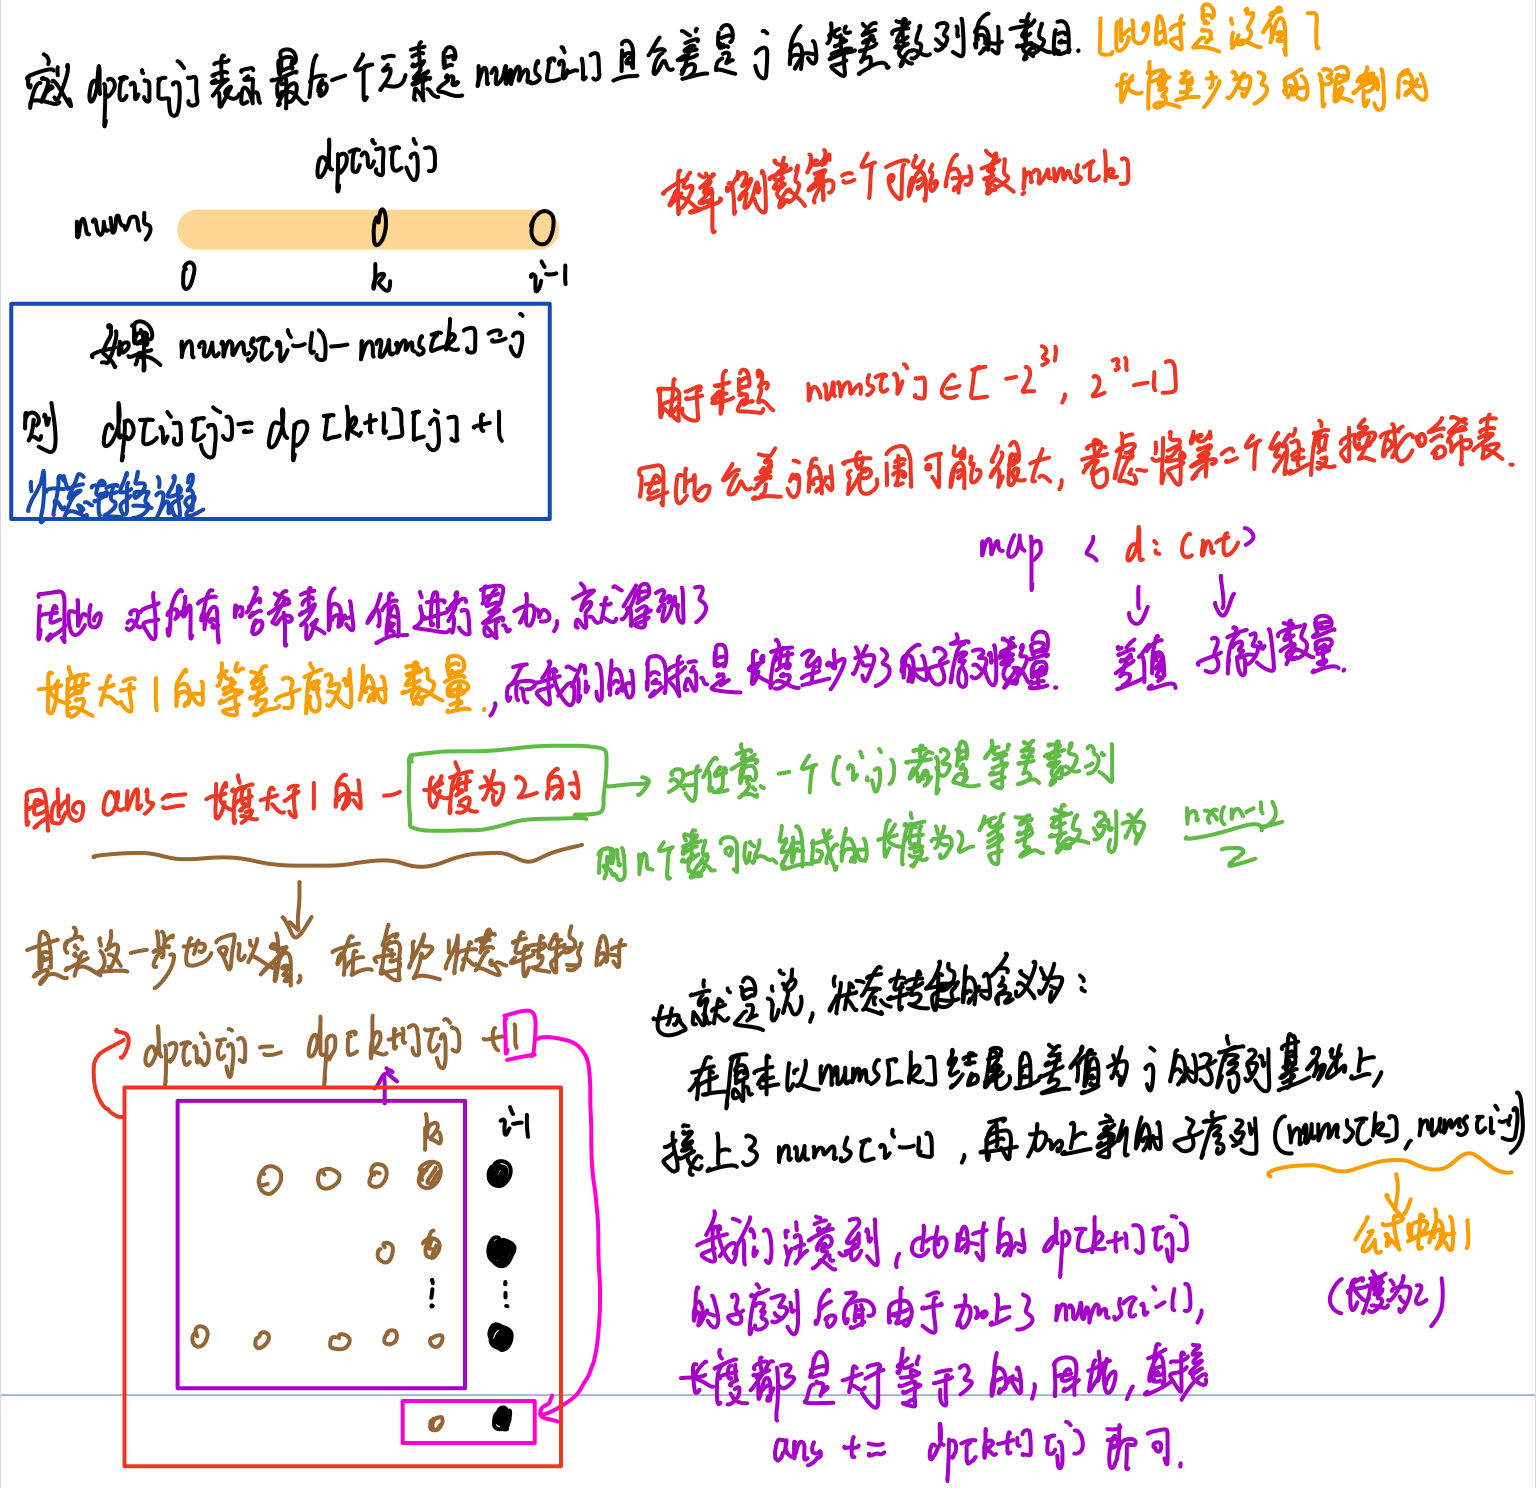 定义 dp[i][j] 表示最后一个元素是 nums[i-1] 且公差是 j 的等差数列的数目. [此时是没有了
长度至少为3的限制的
dp[i][j]
枚举倒数第二个可能的数 nums[k]
nums
0 k i-1
如果 nums[i-1] - nums[k] = j
则 dp[i][j] = dp[k+1][j] + 1
状态转移方程
由于本题 nums[i] ∈ [-2^31, 2^31-1]
因此公差j的范围可能很大, 考虑将第二个维度换成哈希表.
map < d: cnt>
差值 子序列数量.
因此 对所有哈希表的值进行累加, 就得到了
长度大于1的等差子序列的数量., 而我们的目标是长度至少为3的子序列数量.
因此 ans = 长度大于1的 - 长度为2的 → 对任意一个(i,j)都是等差数列
则n个数可以组成的长度为2等差数列为 n×(n-1)/2
其实这一步也可以省, 在每次状态转移时
dp[i][j] = dp[k+1][j] + 1
k i-1
也就是说, 状态转移的含义为:
在原本以nums[k]结尾且差值为j的子序列基础上,
接上了 nums[i-1], 再加上新的子序列 (nums[k], nums[i-1])
公式中的1
(长度为2)
我们注意到, 此时的 dp[k+1][j]
的子序列后面由于加上了 nums[i-1],
长度都是大于等于3的, 因此, 直接
ans += dp[k+1][j] 即可.